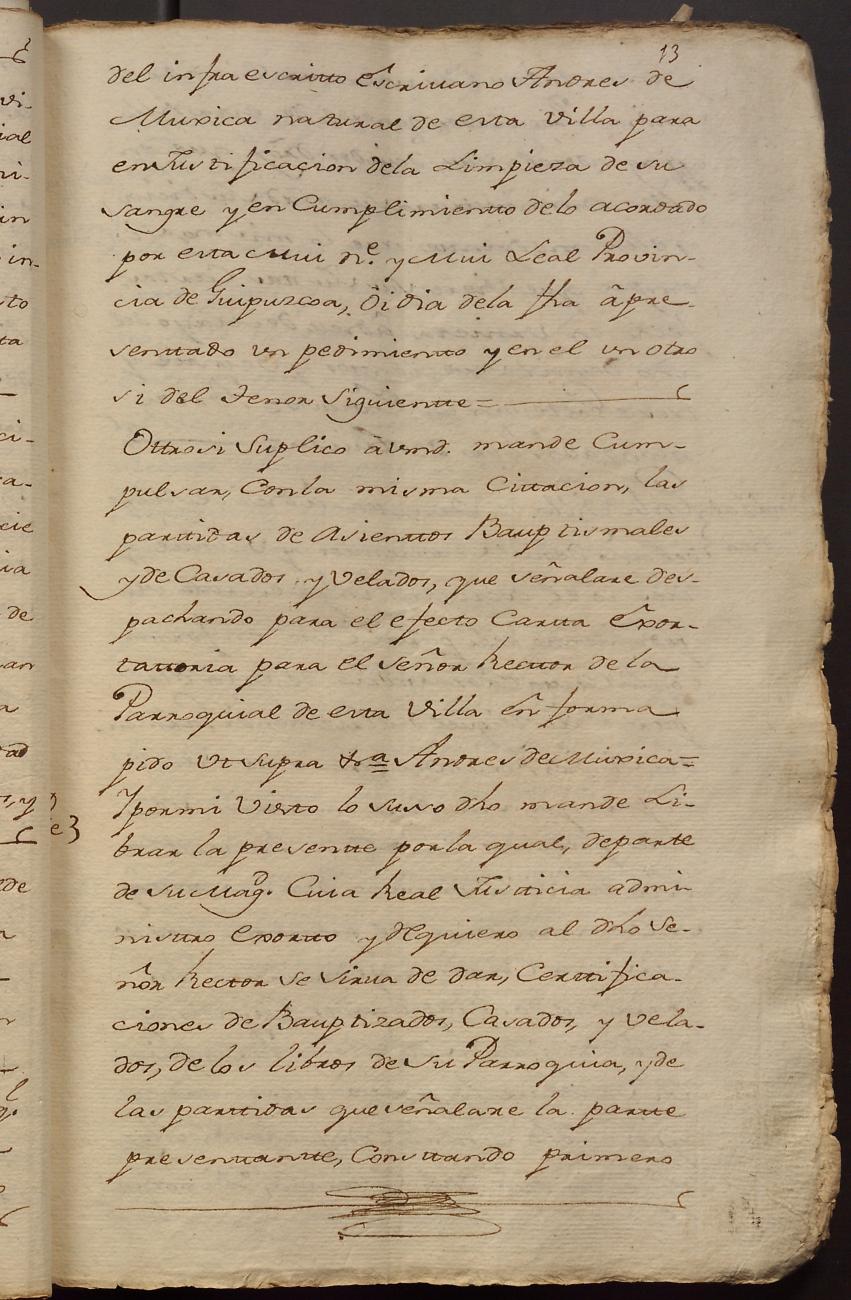 13
del infraescritto Escriuano Andres de
Muxica natural de esta villa para
en Justificacion dela Limpieza de su
sangre y en Cumplimientto delo acordado
por esta Mui N.e y Mui Leal Provin-
cia de Guipuzcoa, oi dia dela fha â pre-
senttado un pedimientto y en el un otro
si del tenor siguientte =
Ottrosi Suplico â vmd. mande Cum-
pulsar, Con la misma Cittacion, las
parttidas de Asienttos Bauptismales
y de Casados y Velados, que señalare des-
pachando para el efecto Cartta êxor-
tattoria para el señor Rector de la
Parroquial de esta Villa ên forma
pido Ut supra Andres de Muxica =
Y por mi Visto lo suso dho mande Li-
brar la presentte por la qual, de parte
de su Magd. Cuia Real Justticia admi-
nistro Exortto y Requiero al dho Se-
ñor Rector se sirua de dar, Certtifica-
ciones de Bauptizados, Casados, y Vela-
dos, de los libros de su Parroquia, y de
las parttidas que señalare la partte
presenttantte, Consttando primero